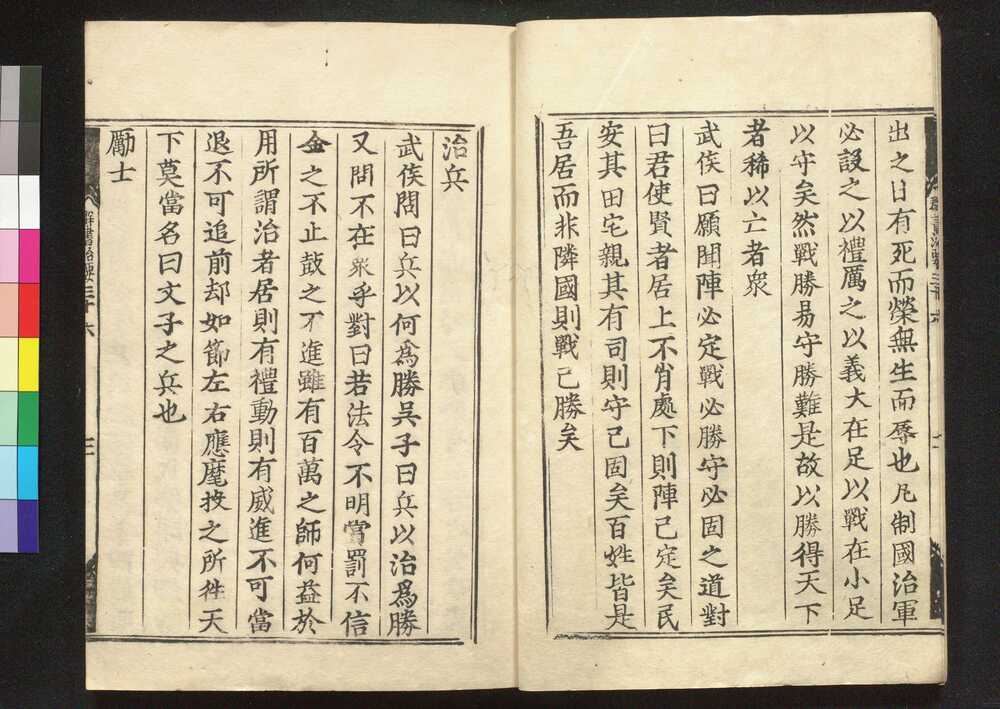 出之日有死而榮無生而辱也凡制國治軍
必設之以禮厲之以義大在足以戰在小足
以守矣然戰勝易守勝難是故以勝得天下
者稀以亡者衆
武侯曰願聞陣必定戰必勝守必固之道對
曰君使賢者居上不肖處下則陣已定矣民
安其田宅親其有司則守已固矣百姓皆是
吾居而非隣國則戰已勝矣
治兵
武侯問曰兵以何爲勝吳子曰兵以治爲勝
又問不在衆乎對曰若法令不明賞罰不信
金之不止鼓之不進雖有百萬之師何益於
用所謂治者居則有禮動則有威進不可當
退不可追前却如節左右應麾投之所往天
下莫當名曰父子之兵也
群書治要三十六
三
勵士